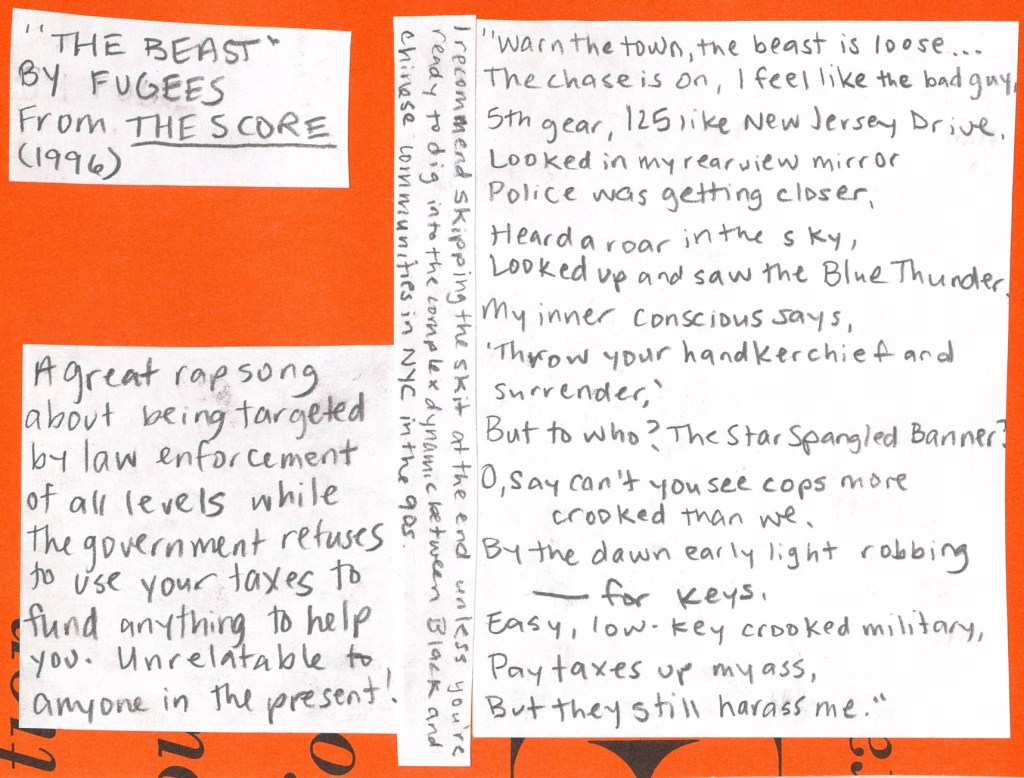 "THE BEAST"
BY FUGEES
From THE SCORE
(1996)
A great rap song
about being targeted
by law enforcement
of all levels while
the government refuses
to use your taxes to
fund anything to help
you. Unrelatable to
anyone in the present!
I recommend skipping the skit at the end unless you're
ready to dig into the complex dynamic between Black and
chinese communities in NYC in the 90s.
"Warn the town, the beast is loose...
The chase is on, I feel like the bad guy,
5th gear, 125 like New Jersey Drive.
Looked in my rearview mirror
Police was getting closer,
Heard a roar in the sky,
Looked up and saw the Blue Thunder.
My inner conscious says,
'Throw your handkerchief and
surrender,'
But to who? The Star Spangled Banner?
O, say can't you see cops more
crooked than we.
By the dawn early light robbing
— for keys.
Easy, low-key crooked military,
Pay taxes up my ass,
But they still harass me."